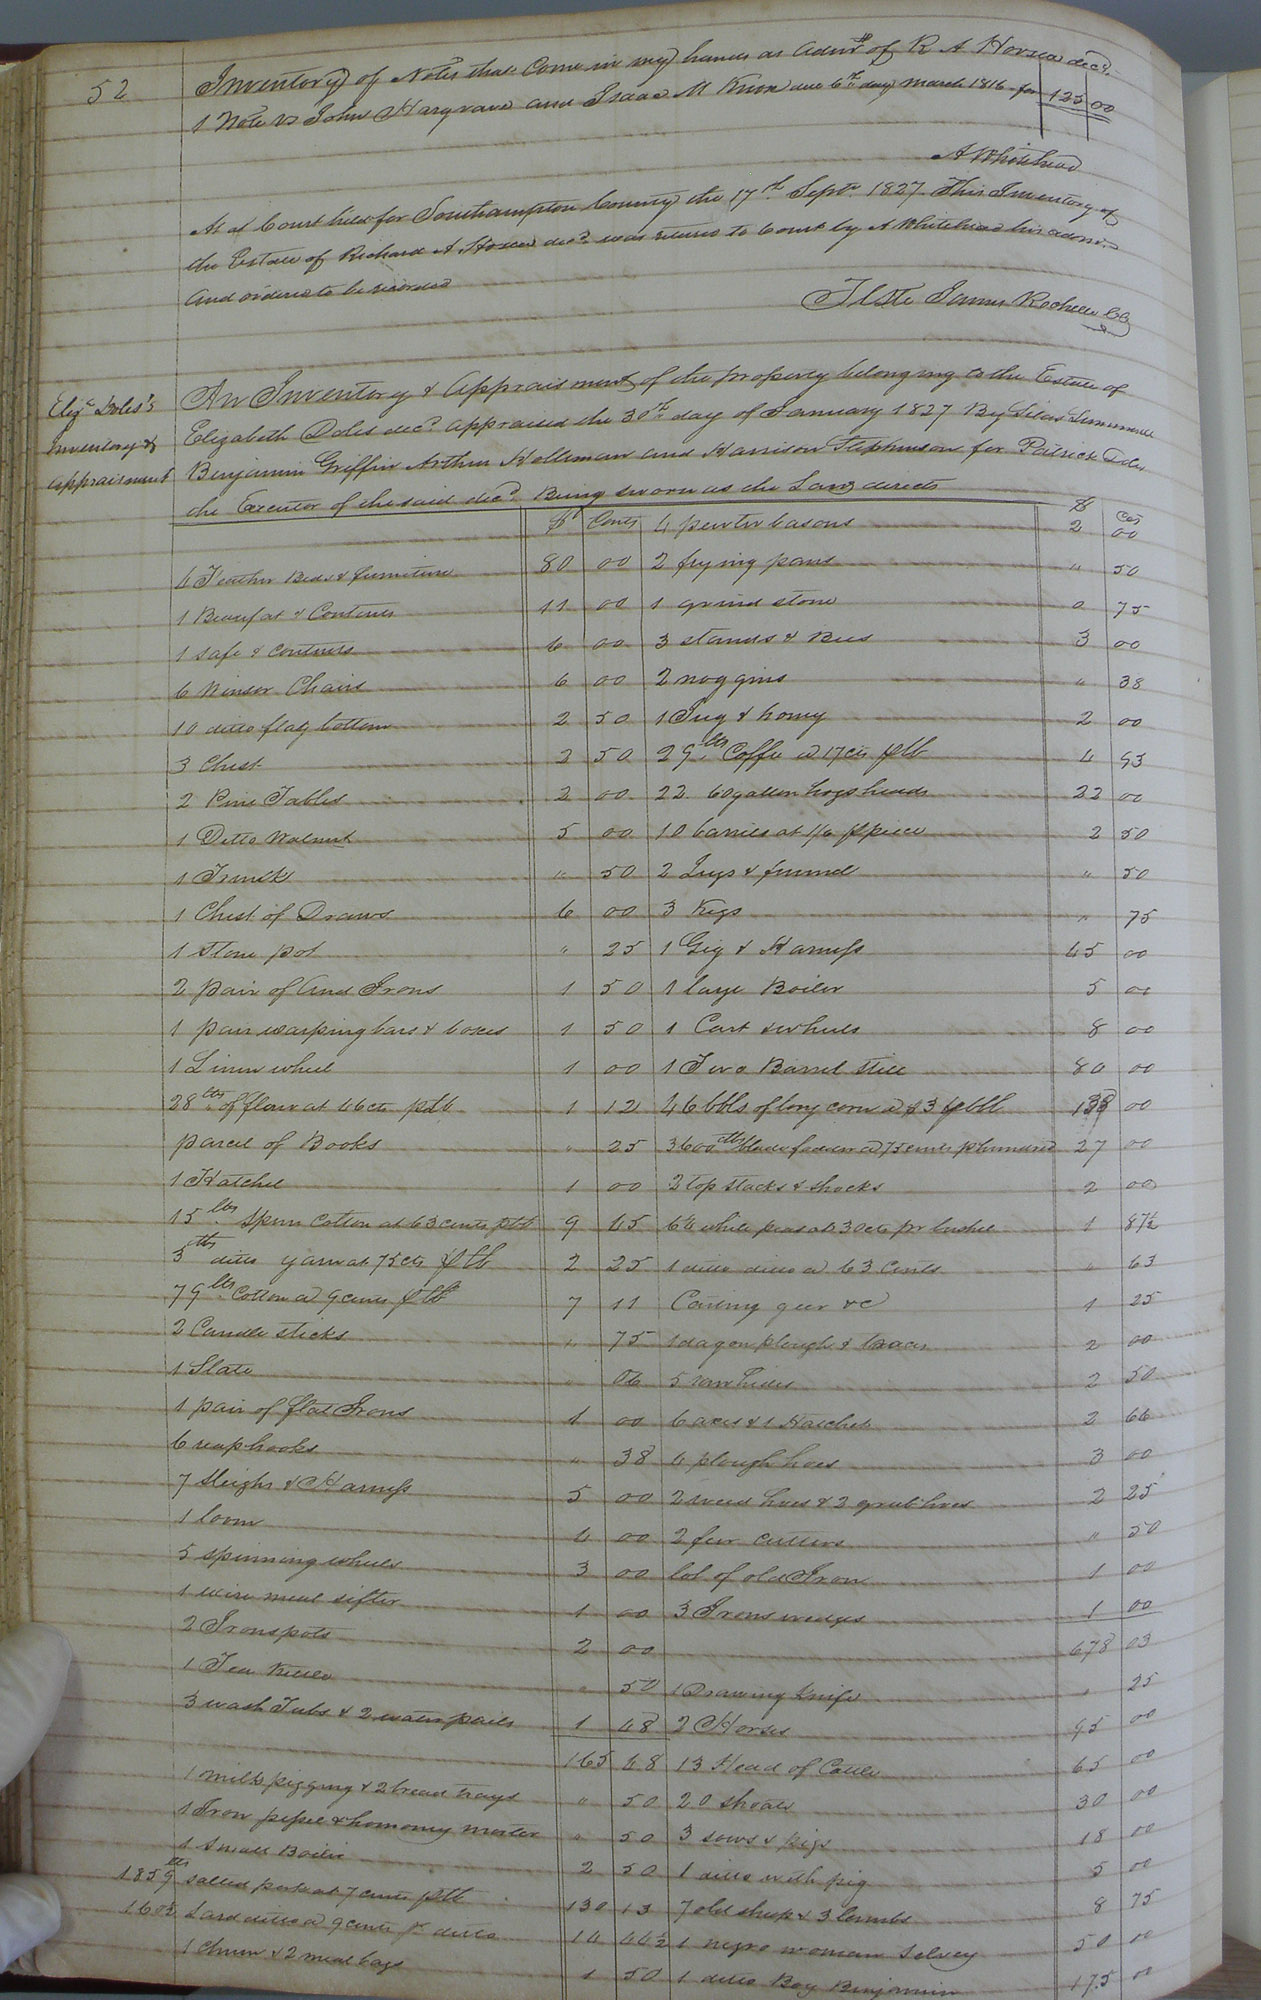 52
Inventory of Notes that Come in my hands as Admr of R A Horsea decd.
1 Note vs John Hargrave and Isaac M Knox due 6th day March 1816 for 125 00
A Whitehead
At a Court held for Southampton County the 17th Sept. 1827 This Inventory of
the Estate of Richard A decd was returnd to Court by A Whitehead his admr.
and orderd to be recorded
Teste James Rochelle CC
Eliza Doles's
Inventory &
appraisment
An Inventory & Appraisment of the property belonging to the Estate of
Elizabeth Doles decd. appraised the 30th day of January 1827 By Silas
Benjamin Griffin Arthur Holleman and Harrison Stephenson for Patrick Doles
the Executor of the said decd. Being sworn as the Law directs
$ Cents
4 Feather Beds & furniture 80 00
1 Beaufat & Contents 11 00
1 safe & contents 6 00
6 Winsor Chairs 6 00
10 ditto flag bottom 2 50
3 Chest 2 50
2 Pine Tables 2 00
1 Ditto Walnut 5 00
1 Trunk " 50
1 Chest of Draws 6 00
1 Stone pot " 25
2 pair of And Irons 1 50
1 pair warping bars & boxes 1 50
1 Linen wheel 1 00
28 lbs of flour at 4 cts plb 1 12
parcel of Books " 25
1 Hatchel 1 00
15 lbs. spun Cotton at 63 cents plb 9 45
3 lbs ditto yarn at 75 cts plb 2 25
79 lbs Cotton @ 9 cents plb 7 11
2 Candle sticks " 75
1 Slate " 06
1 pair of flat Irons 1 00
6 reap hooks " 38
7 Sleighs & Harness 5 00
1 loom 4 00
5 spinning wheels 3 00
1 wire meal sifter 1 00
2 Iron pots 2 00
1 Tea Kettle " 50
3 wash Tubs & 2 water pails 1 48
165 48
1 milk piggin & 2 bread trays " 50
1 Iron pestle & homony morter " 50
1 Small Boiler 2 50
1859 lbs salted pork at 7 cents plb 130 13
160½ Lard ditto @ 9 cents pr ditto 14 44½
1 churn & 2 meal bags 1 50
$ Cts
4 pewter basons 2 00
2 frying pans " 50
1 grind stone 0 75
3 stands & Bees 3 00
2 noggins " 38
1 Jug & honey 2 00
29 lbs Coffe @ 17 cts plb 4 93
22 60 gallon hogsheads 22 00
10 barries at 1/6 ppiece 2 50
2 Jugs & funnel " 50
3 Kegs " 75
1 Gig & Harness 45 00
1 large Boiler 5 00
1 Cart & wheels 8 00
1 Two Barrel Still 80 00
46 bbls of long corn @ $3 pbbl 138 00
3600 lbs blade fodder @ 75 cents phundred 27 00
2 top stacks & shocks 2 00
white peas at 30 cts pr bushel 1 87½
1 ditto ditto @ 63 Cents " 63
geer &c 1 25
1 dagon plough & traces 2 00
5 raw hides 2 50
6 axes & 1 Hatchet 2 66
6 plough hoes 3 00
2 weed hoes & 2 grub hoes 2 25
2 cutters " 50
lot of old Iron 1 00
3 Irons wedges 1 00
678 03
1 Drawing knife " 25
2 Horses 95 00
13 Head of Cattle 65 00
20 shoats 30 00
3 sows & pigs 18 00
1 ditto with pig 5 00
7 old sheep & 3 lambs 8 75
1 negro woman Selvey 50 00
1 ditto Boy Benjamin 175 00